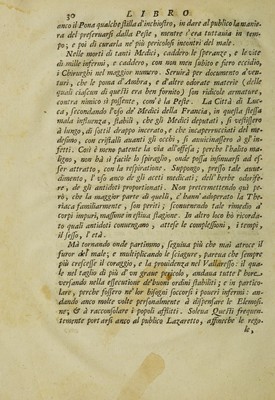 30 LIBRO
anco il Pona qualche stilla d'inchiostro, in dare al publico la manie-
ra del preseruarsi dalla Peste, mentre c'era tuttauia in tem-
po; e poi di curarla ne' più pericolosi incontri del male.
Nelle morti di tanti Medici, caddero le speranze, e le vite
di mille infermi, e caddero, con nun men subito e fiero eccidio,
i Chirurghi nel maggior numero. Seruirà per documento a' ven-
turi, che le poma d'Ambra, e d'altro odorate materie (delle
quali ciascun di questi era ben fornito) son ridicole armature,
contra nimico sì possente, com'è la Peste. La Città di Luc-
ca, secondando l'uso de' Medici della Francia, in questa stessa
mala influenza, stabilì, che gli Medici deputati, si vestissero
à lungo, di sottil drappo incerato, e che incapperucciati del me-
desimo, con cristalli auanti gli occhi, si auuicinassero à gl'in-
fetti. Così è meno patente la via all'offesa; perche l'habito ma-
ligno, non hà sì facile lo spiraglio, onde possa insinuarsi ad es-
ser attratto, con la respiratione. Suppongo, presso tale auue-
dimento, l'uso anco de gli aceti medicati, dell'herbe odorife-
re, de gli antidoti proportionati. Non pretermettendo quì pe-
rò, che la maggior parte di quelli, c'hanno adoperato la The-
riaca familiarmente, son periti; sconuenendo tale rimedio a'
corpi impuri, massime in estiua stagione. In altro loco hò ricorda-
to quali antidoti conuengano, attese le complessioni, i tempi,
il sesso, l'età.
Mà tornando onde partimmo, seguiua più che mai atroce il
furor del male; e multiplicando le sciagure, pareua che sempre
più crescesse il coraggio, e la prouidenza nel Vallaresso: il qua-
le nel taglio di più d'vn graue pericolo, andaua tutte l'hore
versando nella essecutione de' buoni ordini stabiliti; e in particu-
lare, perche fossero ne' lor bisogni soccorsi i poueri infermi: an-
dando anco molte volte personalmente à dispensare le Elemosi-
ne, & à racconsolare i popoli afflitti. Soleua Questi frequen-
temente portarsi anco al publico Lazaretto, affineche le rego-
le,